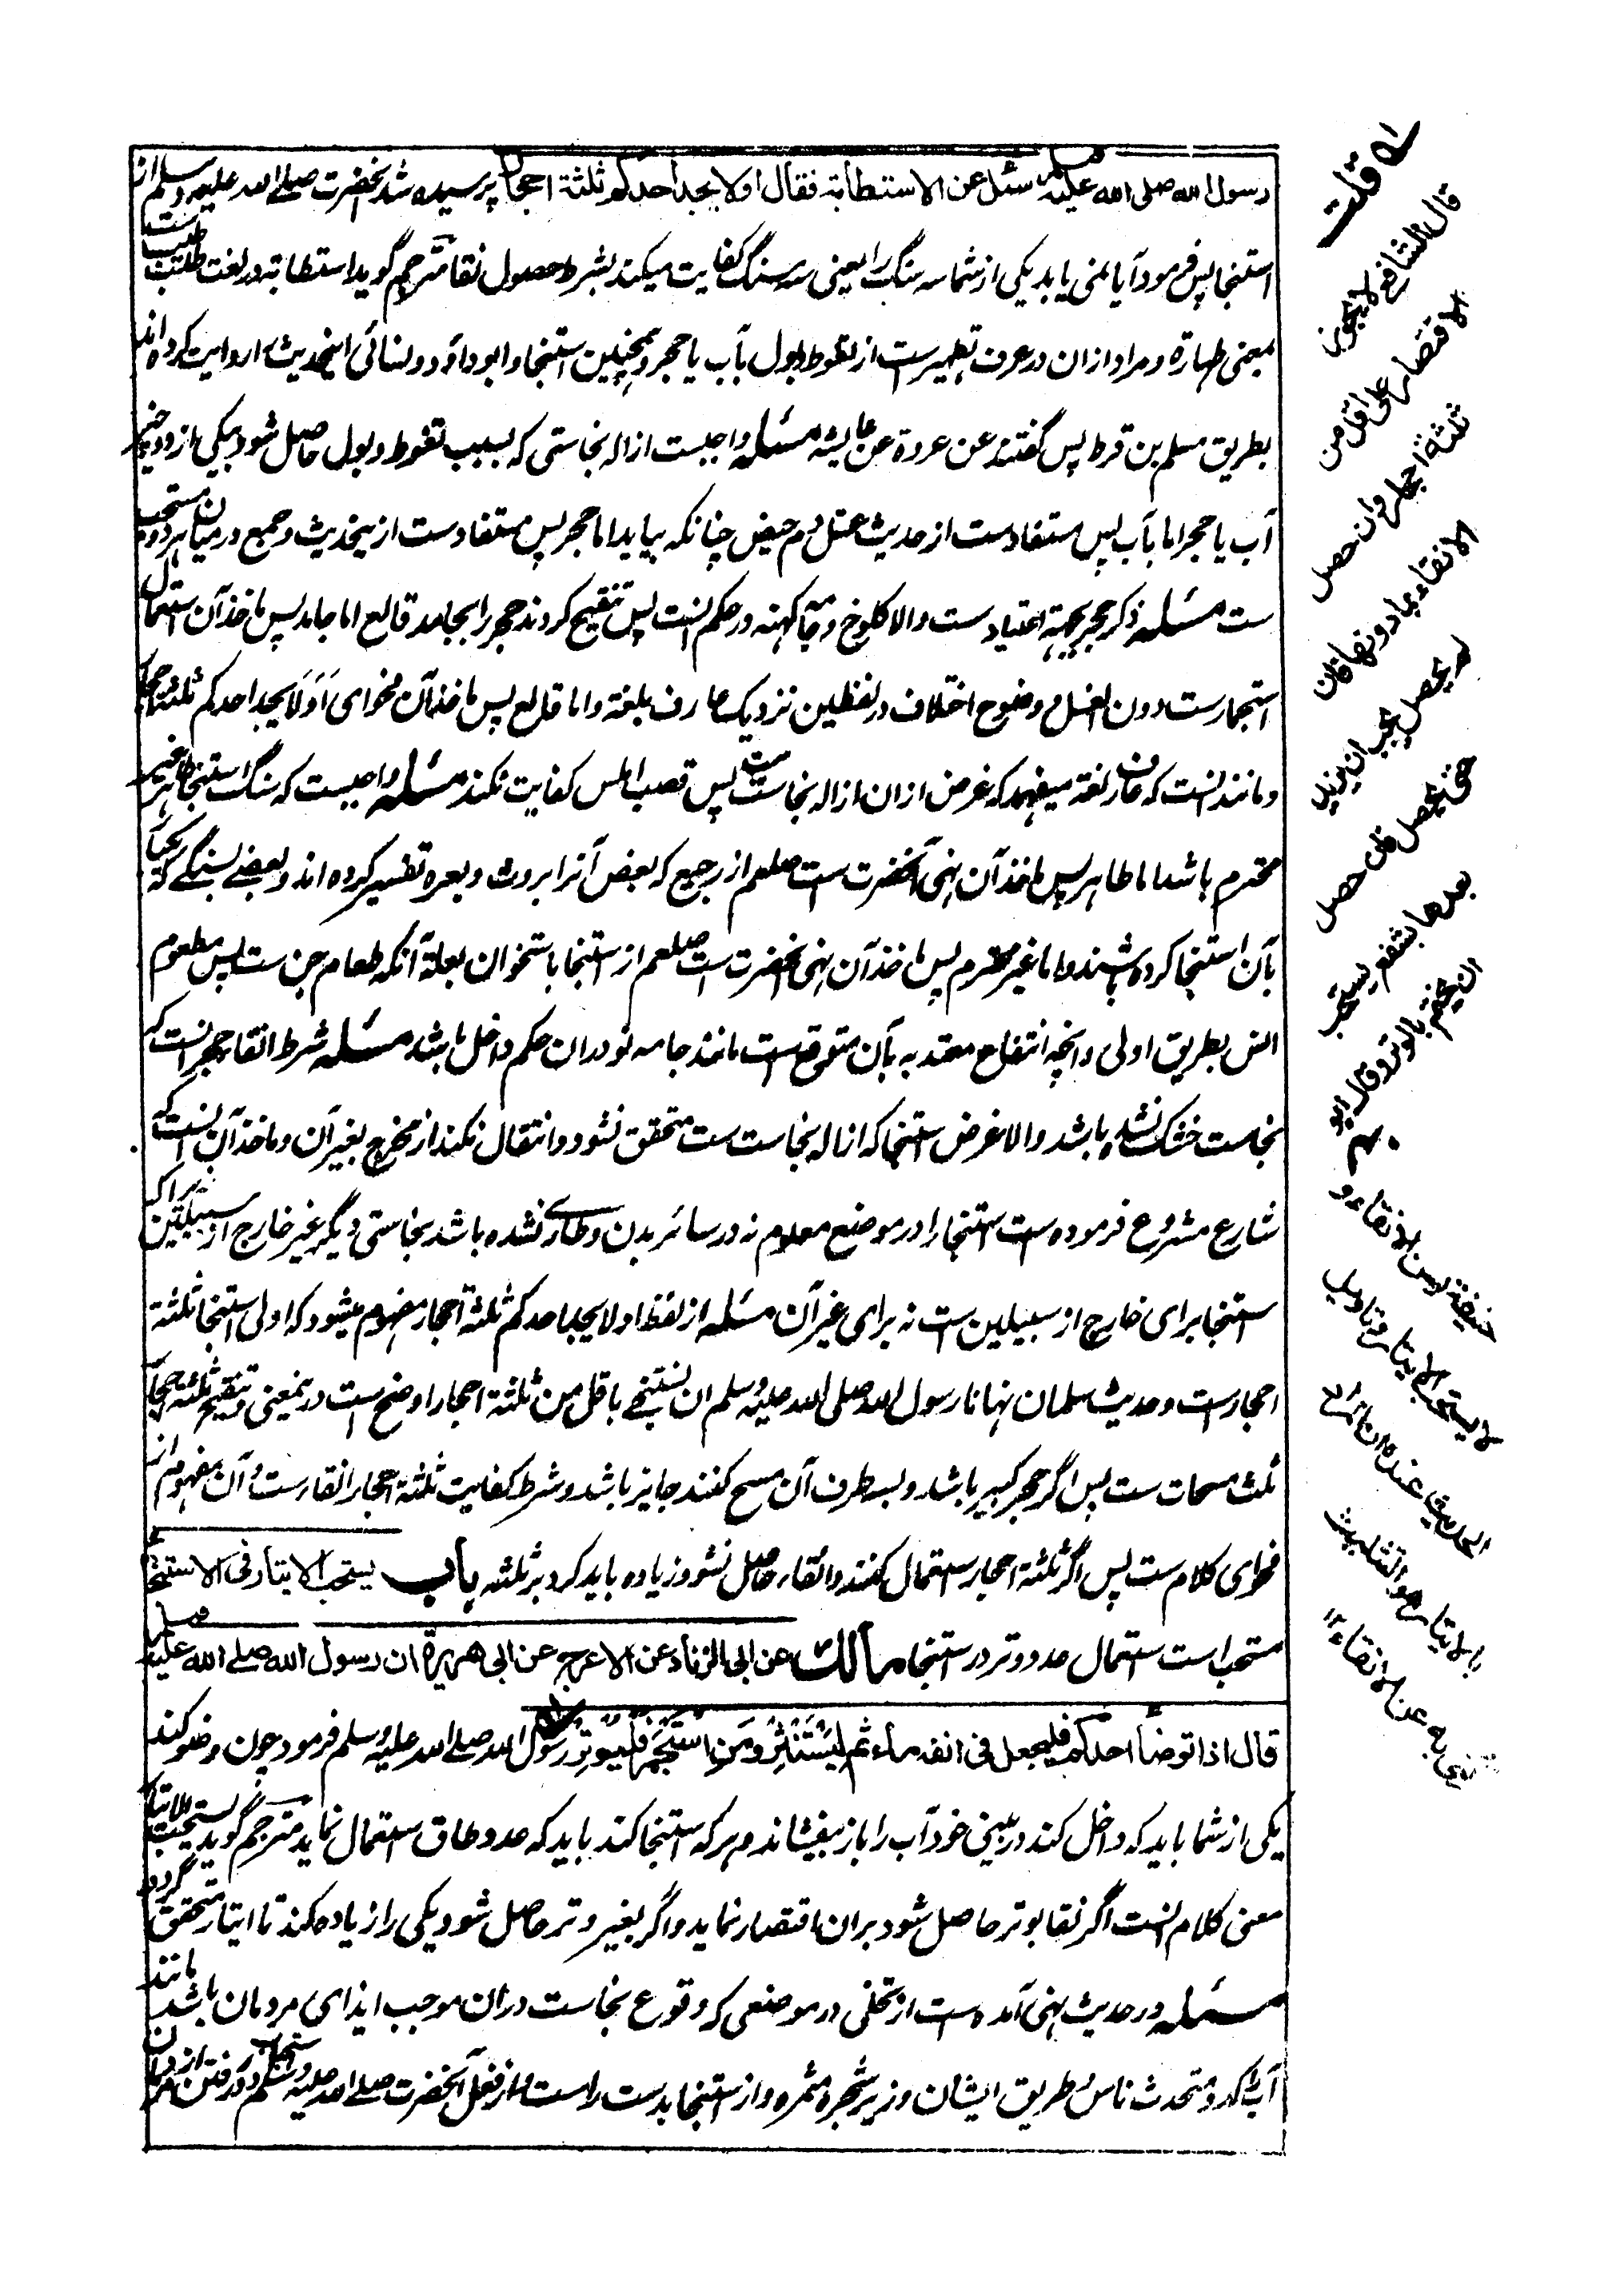 رسول الله صلى الله عليه وسلم سئل عن الاستطابة فقال اولا يجد احدكم ثلثة احجار پرسیده شد آنحضرت صلے الله علیه وسلم از
استنجا پس فرمود آیا نمی یابد یکی از شما سه سنگ را یعنی سه سنگ کفایت میکند بشرط حصول نقا مترجم گوید استطابة در لغت طلب طیب ست
بمعنی طهارة و مراد ازان در عرف تطهیر ست از تغوط و بول بآب یا حجر و همچنین استنجا و ابو داؤد و نسائی اینحدیث را روایت کرده اند
بطریق مسلم بن قرط پس گفتند عن عروة عن عایشه مسئله واجبست ازاله نجاستی که بسبب تغوط و بول حاصل شود بیکی از دو چیز
آب یا حجر اما بآب پس مستفادست از حدیث غسل دم حیض چنانکه بیاید اما حجر پس مستفاد ست ازینحدیث و جمع در میان هر دو مستحب
ست مسئله ذکر حجر بجهة اعتیاد ست والا کلوخ و جامۀ کهنه در حکم اوست پس تنقیح کردند حجر را بجامد قالع اما جامد پس ماخذ آن استعمال
استجمارست دون الغسل و وضوح اختلاف در لفظین نزدیک عارف بلغة و اما قالع پس ماخذ آن فحوای اولا یجد احدکم ثلثة احجار
و مانند اوست که عارف لغة میفهمد که غرض ازان ازاله نجاست ست پس قصب املس کفایت نکند مسئله واجبست که سنگ استنجا طاهر غیر
محترم باشد اما طاهر پس ماخذ آن نهی آنحضرت ست صلعم از رجیع که بعض آنرا بروث و بعره تفسیر کرده اند و بعضے بسنگے که یکبار
بآن استنجا کرده باشند و اما غیر محترم پس ماخذ آن نهی آنحضرت ست صلعم از استنجا باستخوان بعلة آنکه طعام جن ست پس مطعوم
انس بطریق اولی و آنچه انتفاع معتد به بآن متوقع ست مانند جامه نو دران حکم داخل باشد مسئله شرط انقا بحجر آنست که
نجاست خشک نشده باشد والا غرض استنجا که ازاله نجاست ست متحقق نشود و انتقال نکند از مخرج بغیر آن و ماخذ آن آنست که
شارع مشروع فرموده ست استنجا را در موضع معلوم نه در سائر بدن و طاری نشده باشد نجاستی دیگر غیر خارج از سبیلین زیراکه
استنجا برای خارج از سبیلین ست نه برای غیر آن مسئله از لفظ اولا یجد احدکم ثلثة احجار مفهوم میشود که اولی استنجا بثلثة
احجارست و حدیث سلمان نهانا رسول الله صلى الله علیه وسلم ان نستنجے باقل من ثلثة احجار اوضح ست درینمعنی و تنقیح ثلثة احجار
ثلث مسحات ست پس اگر حجر کبیر باشد و بسه طرف آن مسح کنند جایز باشد و شرط کفایت ثلثة احجار انقا ست و آن مفهوم از
فحوای کلام ست پس اگر ثلثة احجار استعمال کنند و انقاء حاصل نشود زیاده باید کرد بر ثلثه باب یستحب الایتار فی الاستنجا
مستحب است استعمال عدد وتر در استنجا مالك عن ابی الزناد عن الاعرج عن ابی هریرة ان رسول الله صلے الله علیه وسلم
قال اذا توضأ احدكم فليجعل فى انفه ماء ثم ليستنثر ومن استجمر فليوتر رسول الله صلے الله علیه وسلم فرمود چون وضو کند
یکی از شما باید که داخل کند در بینی خود آب را باز بیفشاند و هر که استنجا کند باید که عدد طاق استعمال نماید مترجم گوید یستحب الایتار
معنی کلام آنست اگر نقا بوتر حاصل شود بران اقتصار نماید و اگر بغیر وتر حاصل شود یکی را زیاده کند تا ایتار متحقق گردد
مسئله در حدیث نهی آمده ست از تخلی در موضعی که وقوع نجاست دران موجب ایذای مردمان باشد مانند
آب راکد و متحدث ناس و طریق ایشان و زیر شجرۀ مثمره و از استنجا بدست راست و از فعل آنحضرت صلے الله علیه وسلم دور رفتن از
قلت
قال الشافعی لا یجوز
الاقتصار علی اقل من
ثلثة احجار وان حصل
الانقاء بما دونها فان
لم یحصل یجب ان یزید
حتی یحصل فان حصل
بعدها بشفع یستحب
ان یختم بالوتر وقال ابو
حنیفة یسن الانقاء و
لا یستحب الایتار وتاویل
الحدیث عنده ان المراد
بالایتار هو التثلیث
عن الانقاء ۱۲